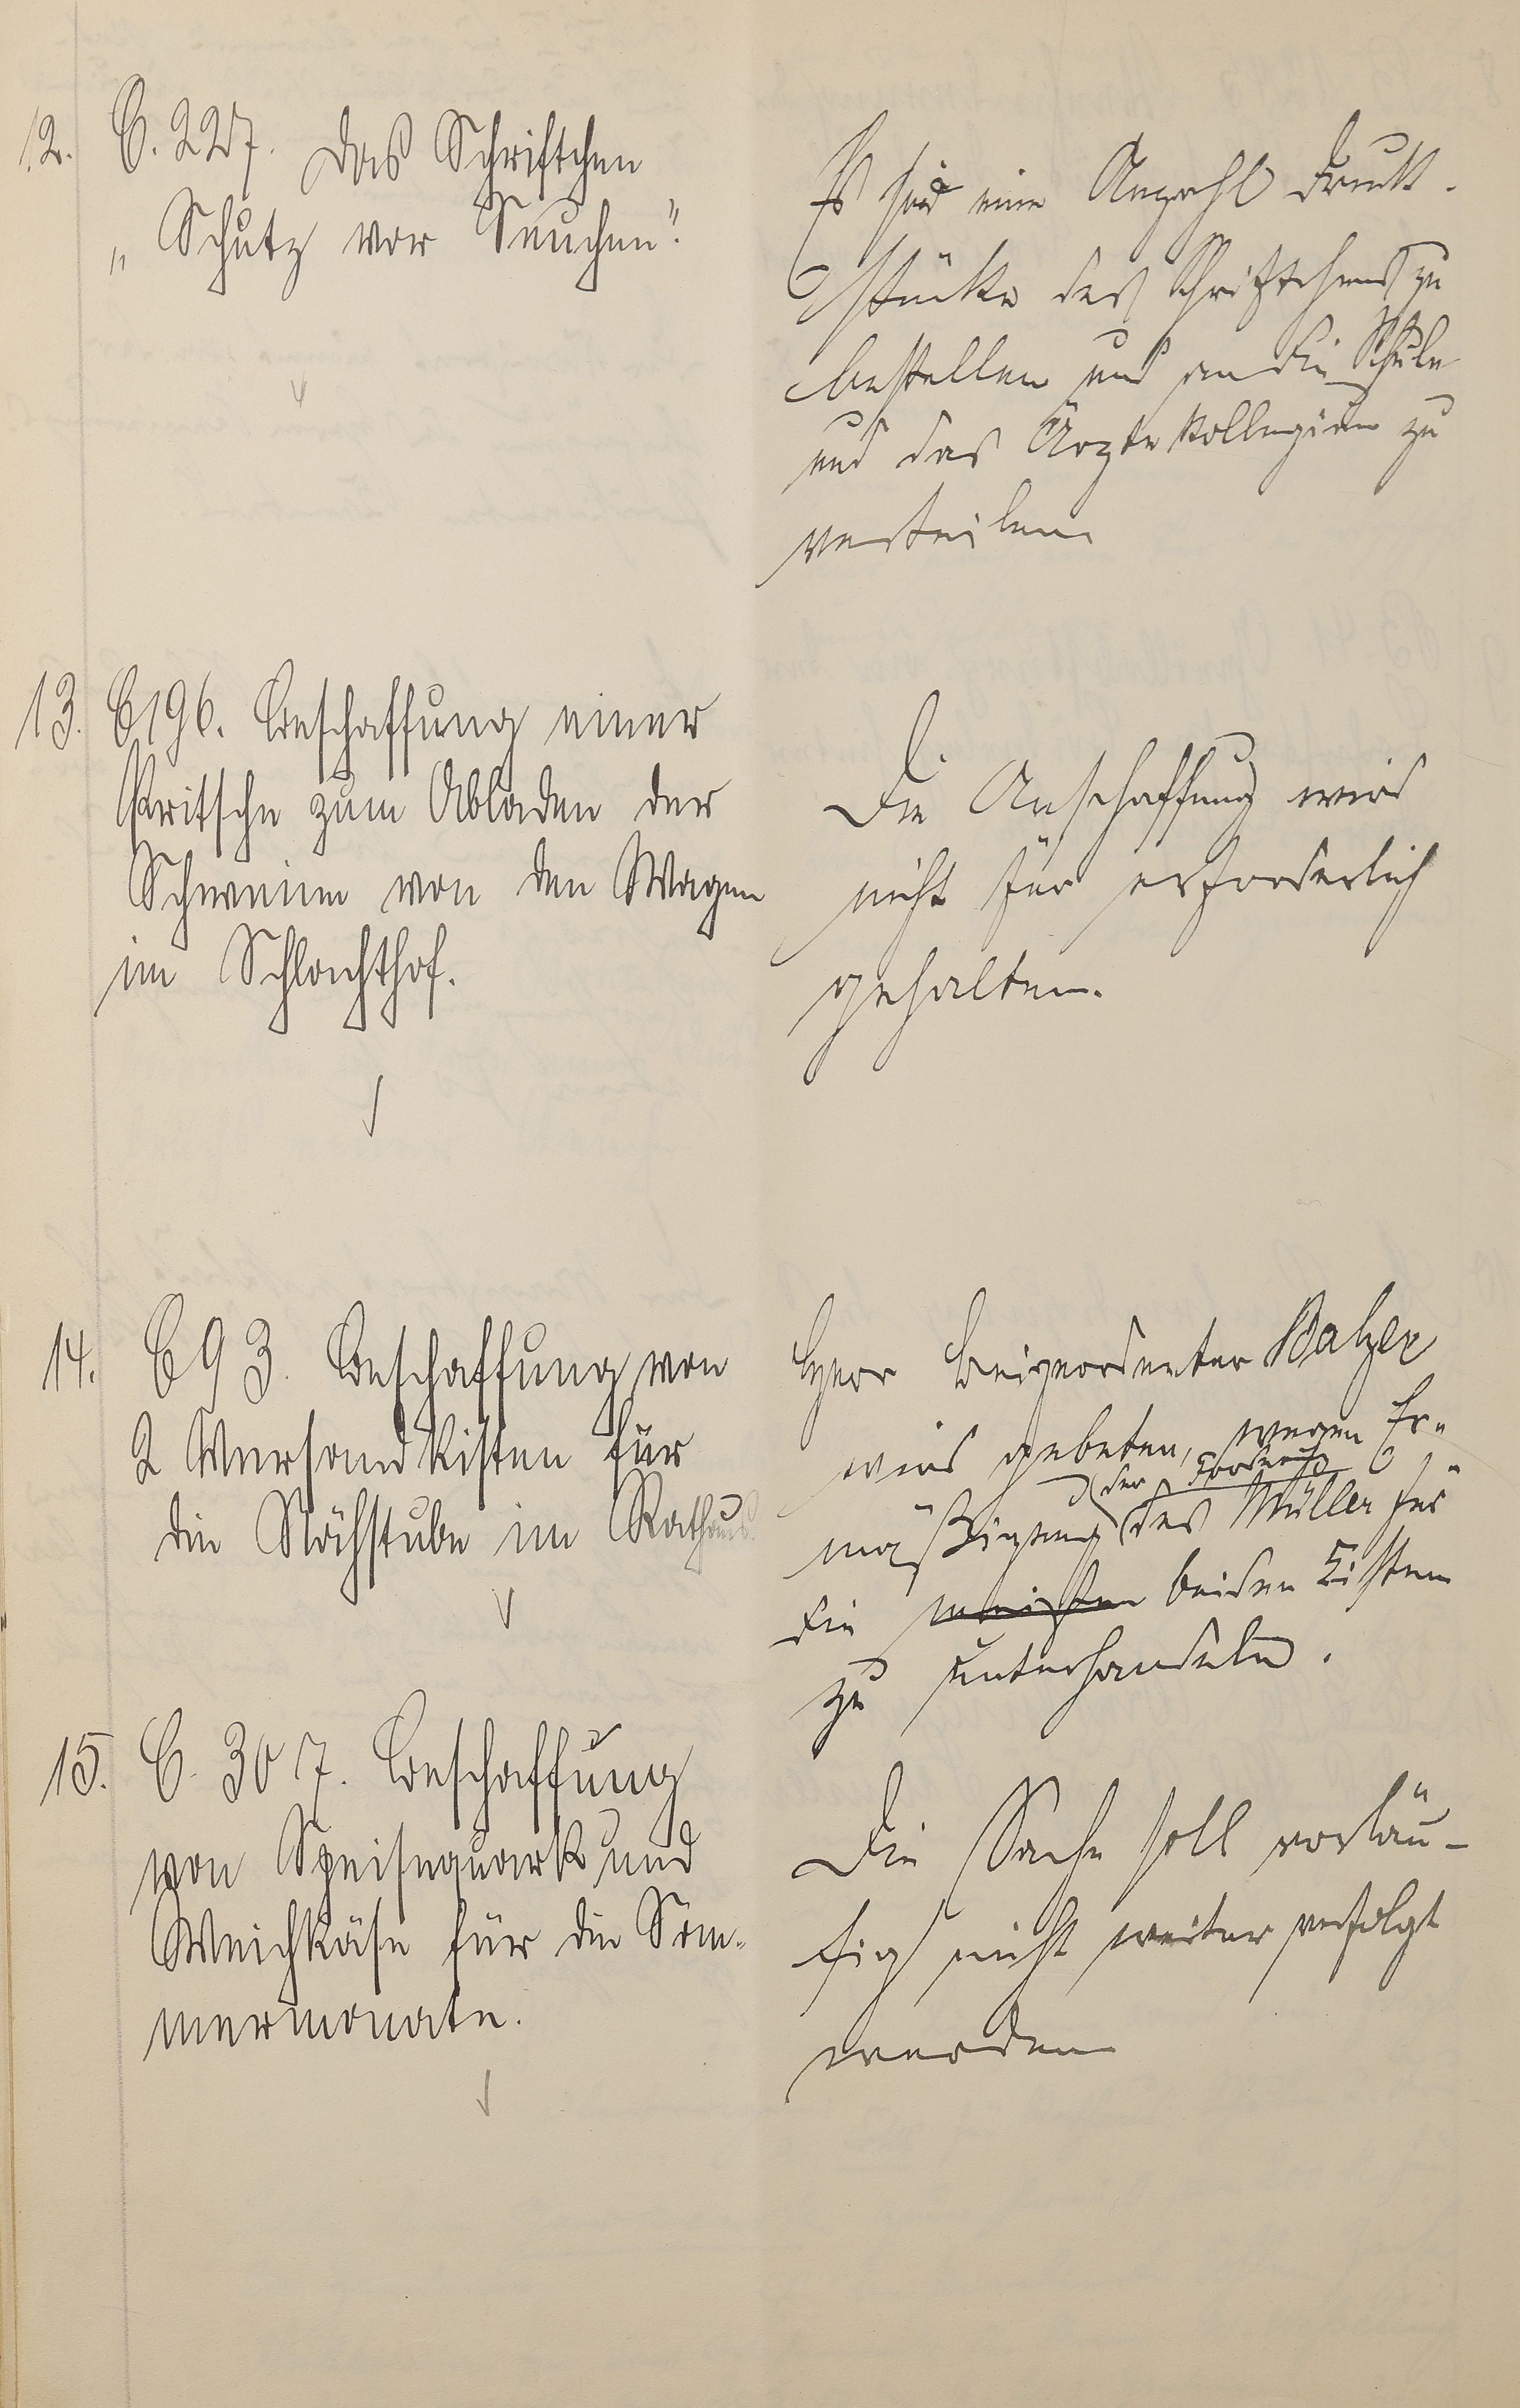 12. C. 227. Das Schriftchen
„Schutz vor Seuchen".
Es sind eine Anzahl Druck-
stücke des Schriftchens zu
bestellen und an die Schule
und das Ärztekollegium zu
verteilen
13. C 196. Beschaffung einer
Pritsche zum Abladen der
Schweine von den Wagen
im Schlachthof.
Die Anschaffung wird
nicht für erforderlich
gehalten.
14. C 93. Beschaffung von
2 Versandkisten für
die Nähstube im Rathaus.
Herr Beigeordneter Balzer
wird gebeten, wegen Er-
der Forderung
mäßigung des Müller für
die meisten beiden Kisten
zu unterhandeln.
15. C. 307. Beschaffung
von Speisequark und
Weichkäse für die Som-
mermonate.
Die Sache soll vorläu-
fig nicht weiter verfolgt
werden